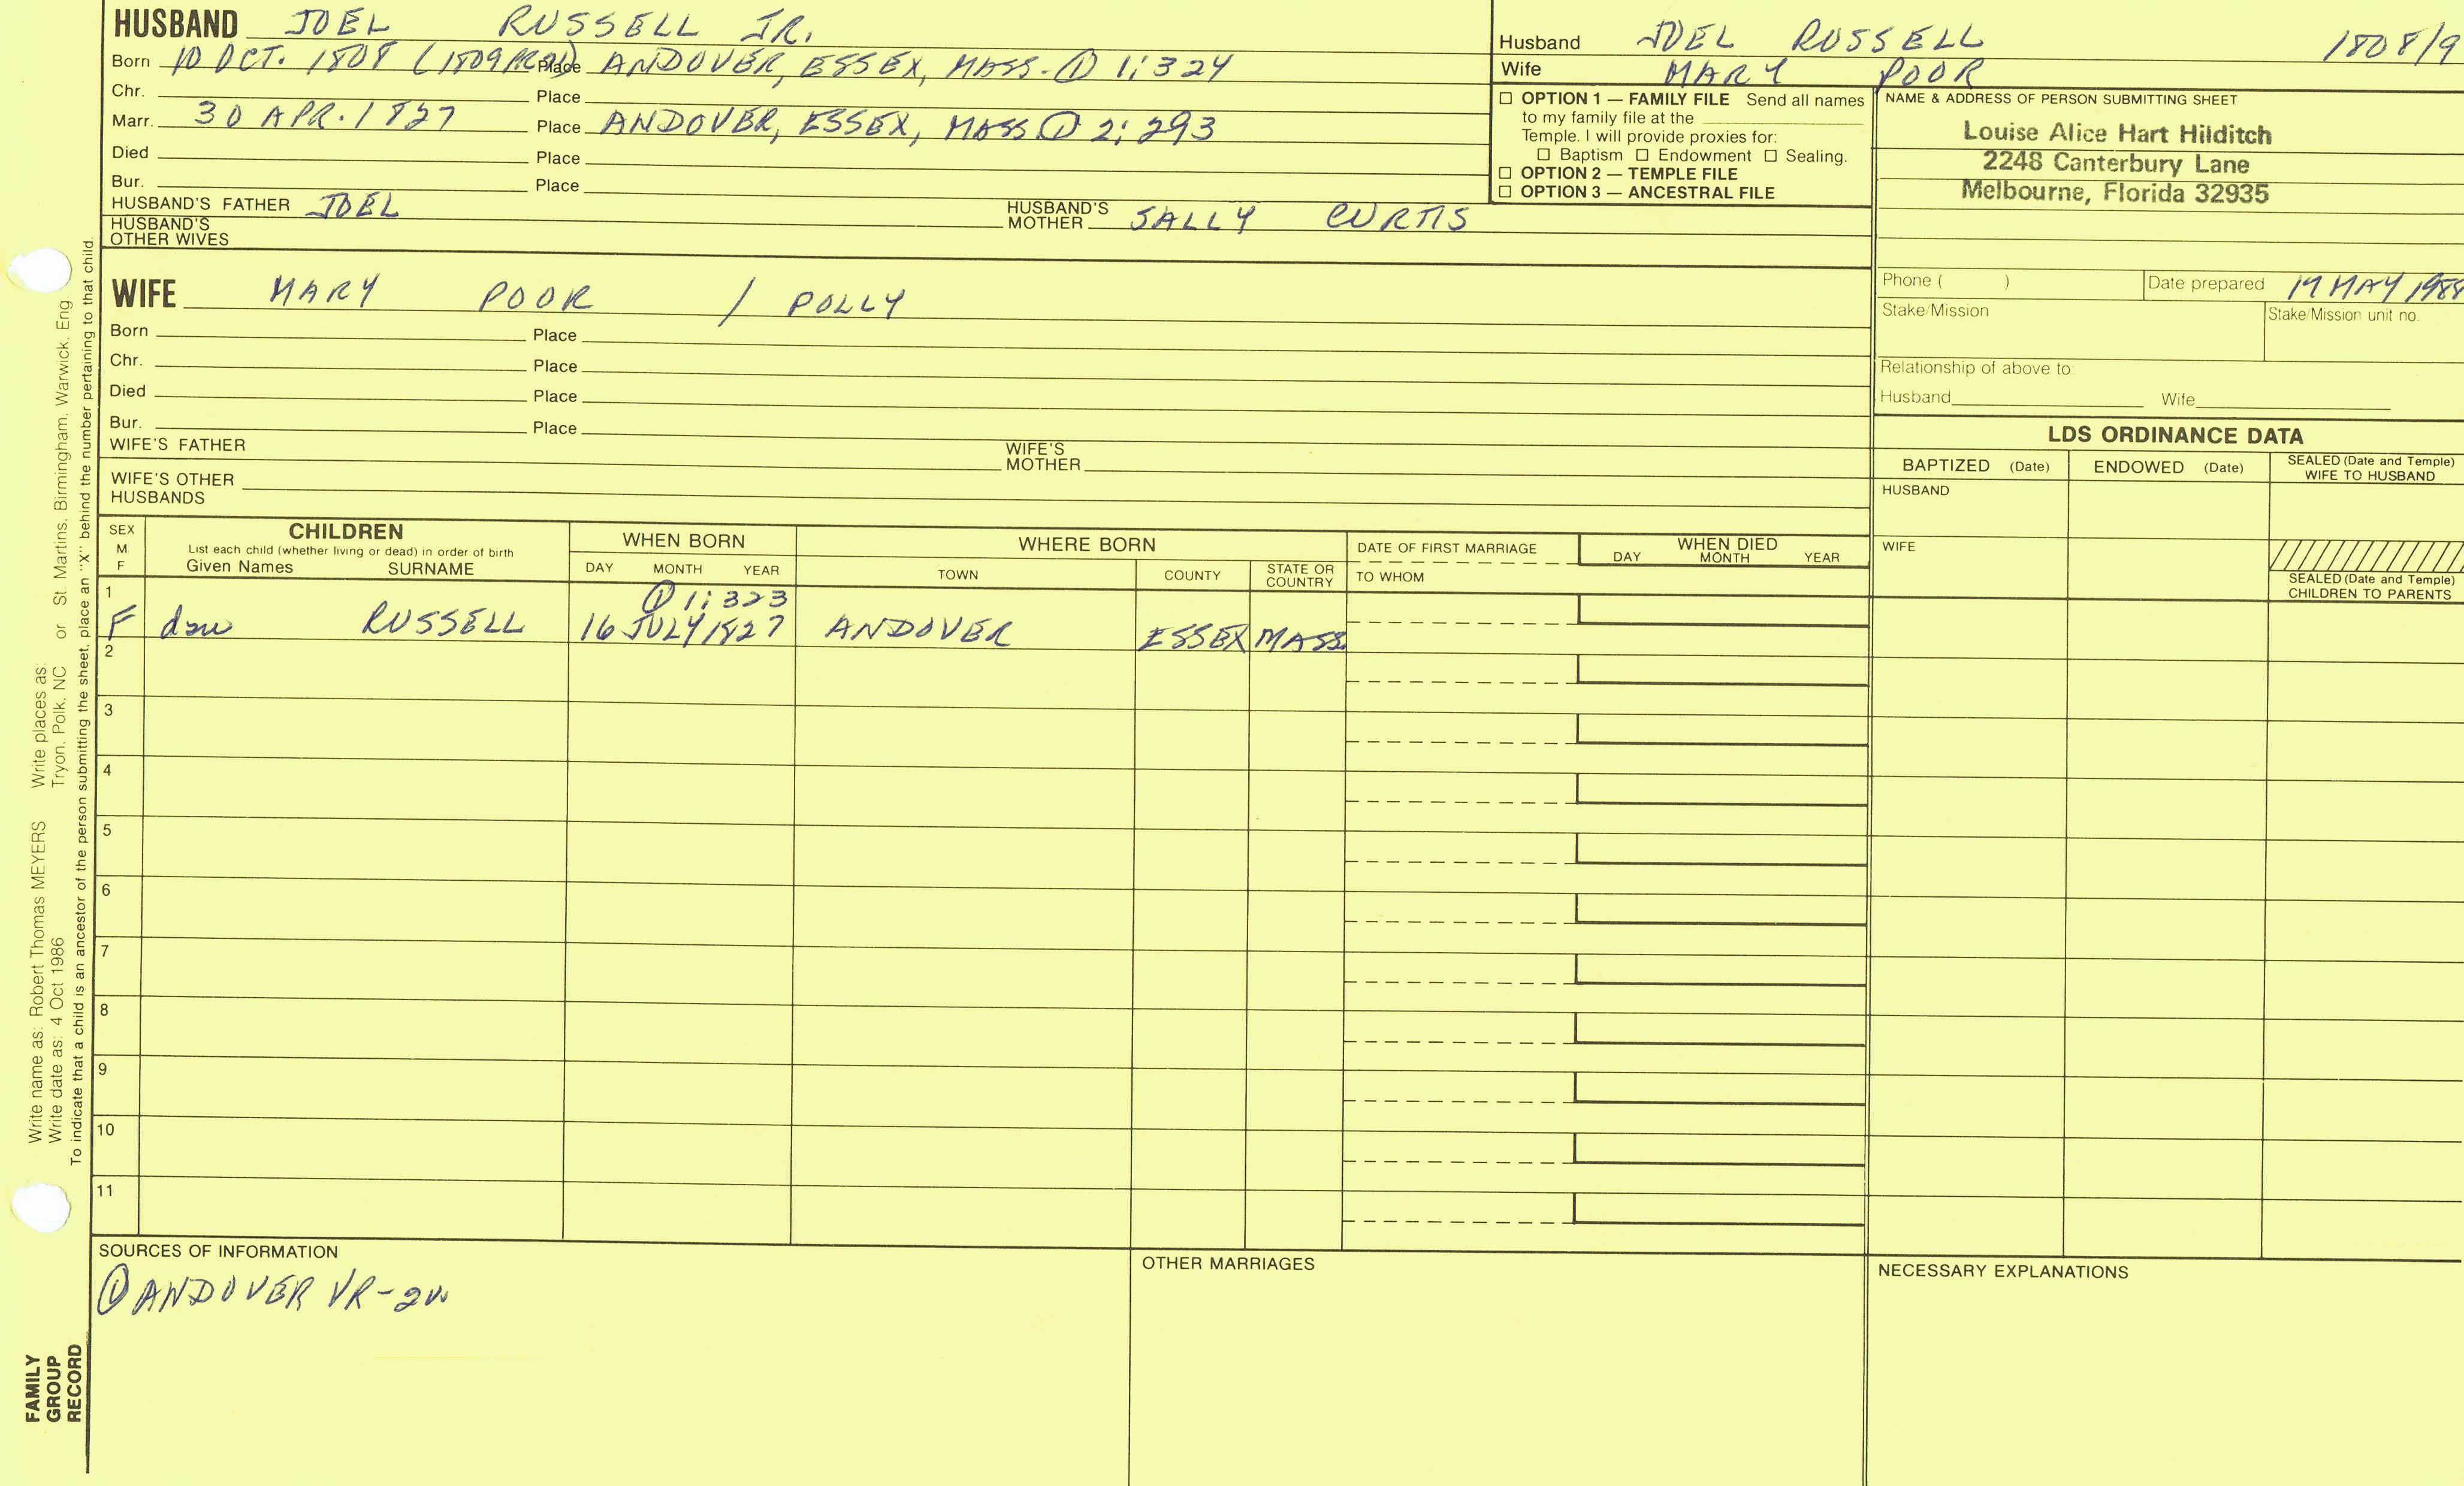 HUSBAND JOEL RUSSELL JR.
Born 10 OCT. 1808 (1809 Place ANDOVER, ESSEX, MASS. ① 1:324
Chr. Place
Marr. 30 APR. 1827 Place ANDOVER, ESSEX, MASS ① 2:293
Died Place
Bur. Place
HUSBAND'S FATHER JOEL HUSBAND'S MOTHER SALLY CURTIS
HUSBAND'S OTHER WIVES
Husband JOEL RUSSELL 1808/9
Wife MARY POOR
☐ OPTION 1 — FAMILY FILE Send all names
to my family file at the
Temple. I will provide proxies for:
☐ Baptism ☐ Endowment ☐ Sealing.
☐ OPTION 2 — TEMPLE FILE
☐ OPTION 3 — ANCESTRAL FILE
NAME & ADDRESS OF PERSON SUBMITTING SHEET
Louise Alice Hart Hilditch
2248 Canterbury Lane
Melbourne, Florida 32935
Phone ( ) Date prepared 19 MAY
Stake/Mission Stake/Mission unit no.
Relationship of above to:
Husband Wife
WIFE MARY POOR / POLLY
Born Place
Chr. Place
Died Place
Bur. Place
WIFE'S FATHER WIFE'S MOTHER
WIFE'S OTHER HUSBANDS
LDS ORDINANCE DATA
BAPTIZED (Date) ENDOWED (Date) SEALED (Date and Temple) WIFE TO HUSBAND
HUSBAND
WIFE
SEALED (Date and Temple)
CHILDREN TO PARENTS
SEX M F
CHILDREN
List each child (whether living or dead) in order of birth
Given Names SURNAME
WHEN BORN
DAY MONTH YEAR
WHERE BORN
TOWN COUNTY STATE OR COUNTRY
DATE OF FIRST MARRIAGE
TO WHOM
WHEN DIED
DAY MONTH YEAR
1
① 1:323
F dau RUSSELL 16 JULY 1827 ANDOVER ESSEX MASS.
2
3
4
5
6
7
8
9
10
11
SOURCES OF INFORMATION
① ANDOVER VR-2v
OTHER MARRIAGES
NECESSARY EXPLANATIONS
Write name as: Robert Thomas MEYERS Write places as:
Write date as: 4 Oct 1986 Tryon, Polk, NC or St. Martins, Birmingham, Warwick, Eng
To indicate that a child is an ancestor of the person submitting the sheet, place an "X" behind the number pertaining to that child.
FAMILY
GROUP
RECORD